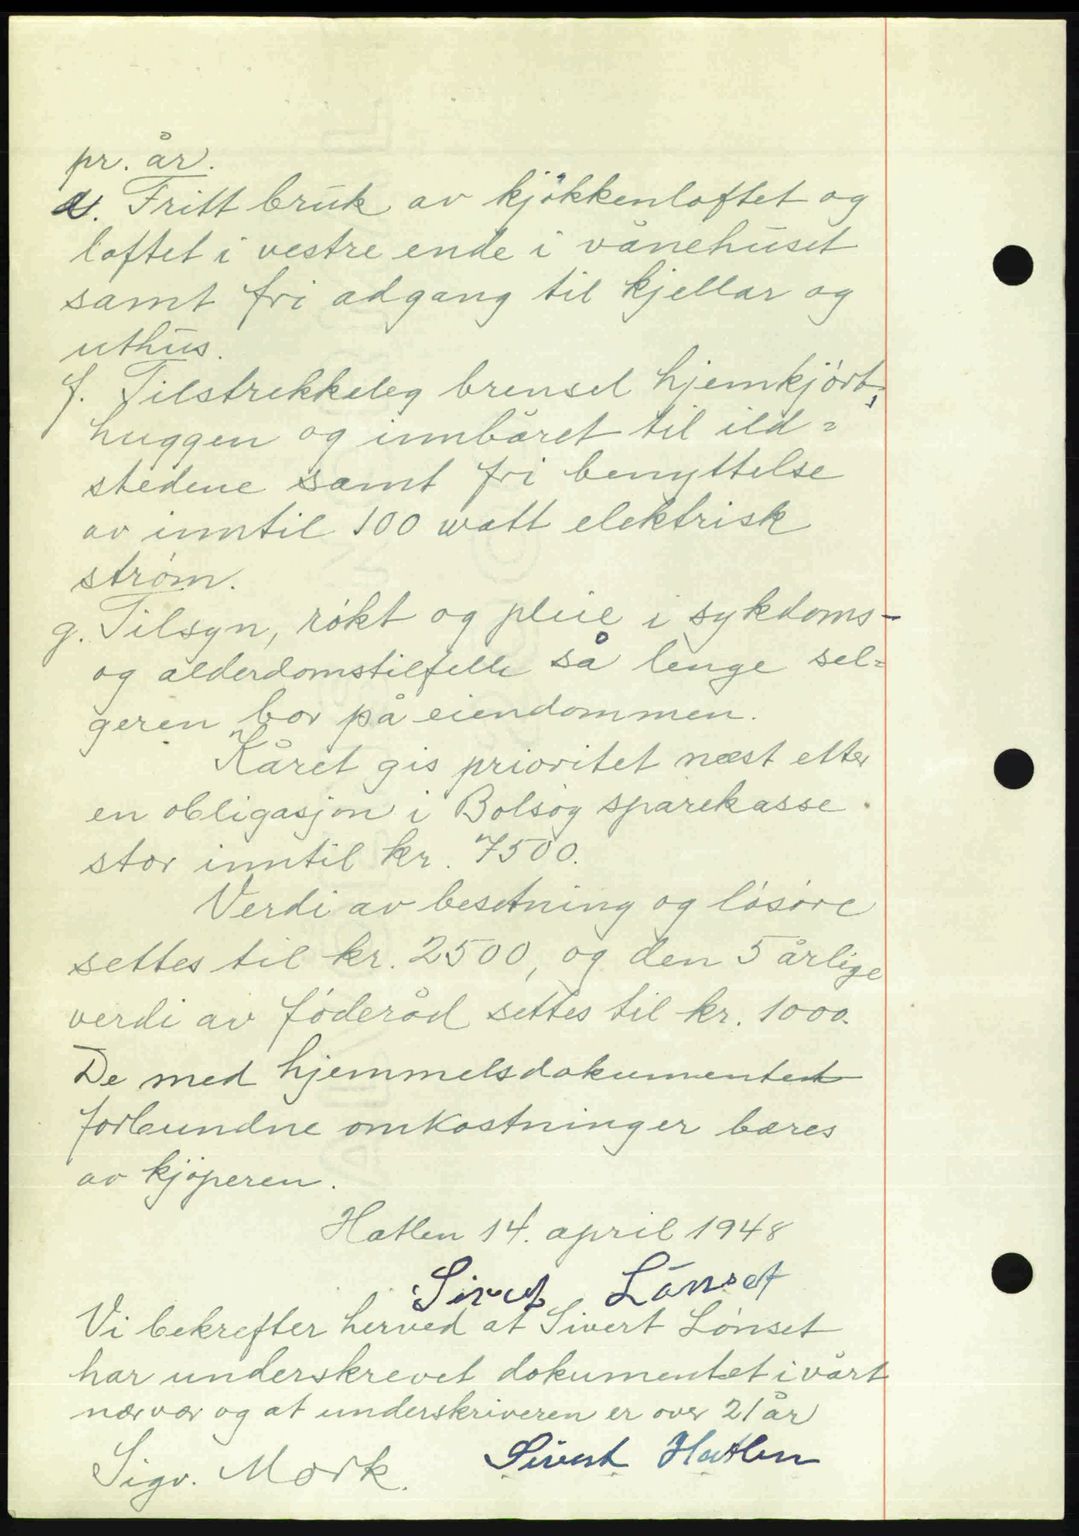 pr. år.
e. Fritt bruk av kjøkkenloftet og
loftet i vestre ende i vånehuset
samt fri adgang til kjellar og
uthus.
f. Tilstrekkeleg brensel hjemkjørt,
huggen og innbåret til ild=
stedene samt fri benyttelse
av inntil 100 watt elektrisk
strøm.
g. Tilsyn, røkt og pleie i sykdoms-
og alderdomstilfelle så lenge sel=
geren bor på eiendommen.
Kåret gis prioritet næst etter
en obligasjon i Bolsøy sparekasse
stor inntil kr. 7500.
Verdi av besetning og løsøre
settes til kr. 2500, og den 5 årlige
verdi av føderåd settes til kr. 1000.
De med hjemmelsdokumentet
forbundne omkostninger bæres
av kjøperen.
Hatlen 14. april 1948
Sivert Lønset
Vi bekrefter herved at Sivert Lønset
har underskrevet dokumentet i vårt
nærvær og at underskriveren er over 21 år
Sigv. Mork. Sivert Hatlen